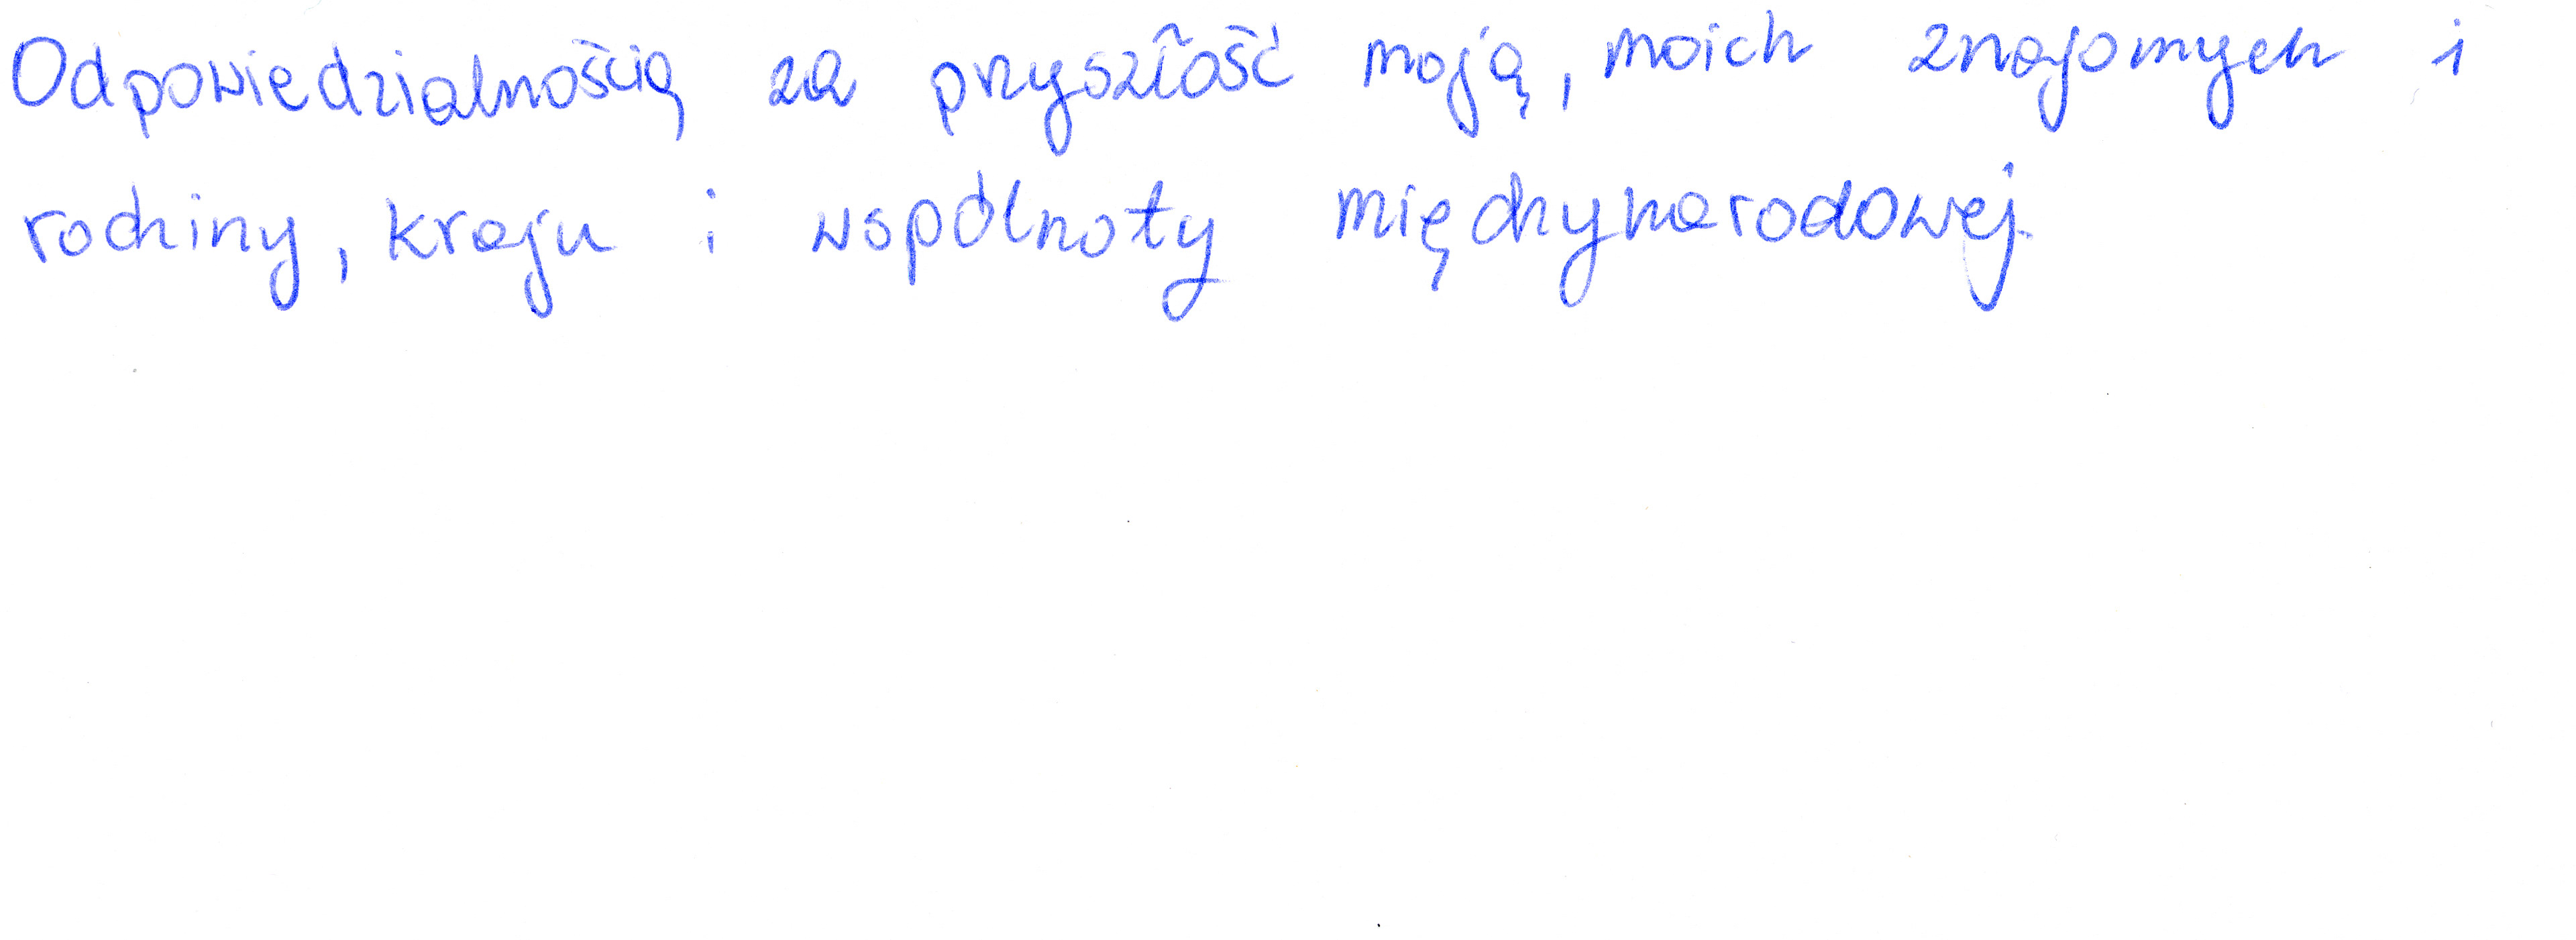 Odpowiedzialnością za przyszłość moją, moich znajomych i
rodziny, kraju i wspólnoty międzynarodowej.